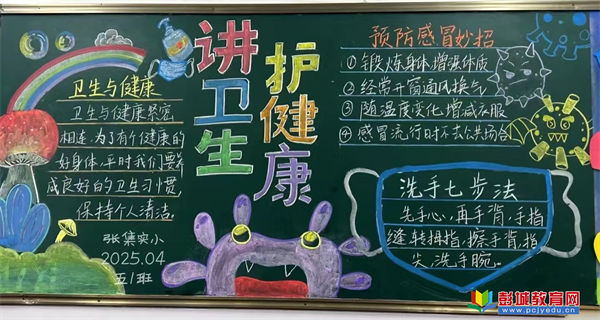 讲卫生
护健康
卫生与健康
卫生与健康紧密
相连.为了有个健康的
好身体.平时我们要养
成良好的卫生习惯,
保持个人清洁.
张集实小
2025.04
五1班
预防感冒妙招
①锻炼身体增强体质
②经常开窗通风换气
③随温度变化增减衣服
④感冒流行时不去公共场合
洗手七步法
先手心,再手背,手指
缝转拇指,擦手背,指
尖,洗手腕。
彭城教育网
www.pcjyedu.cn